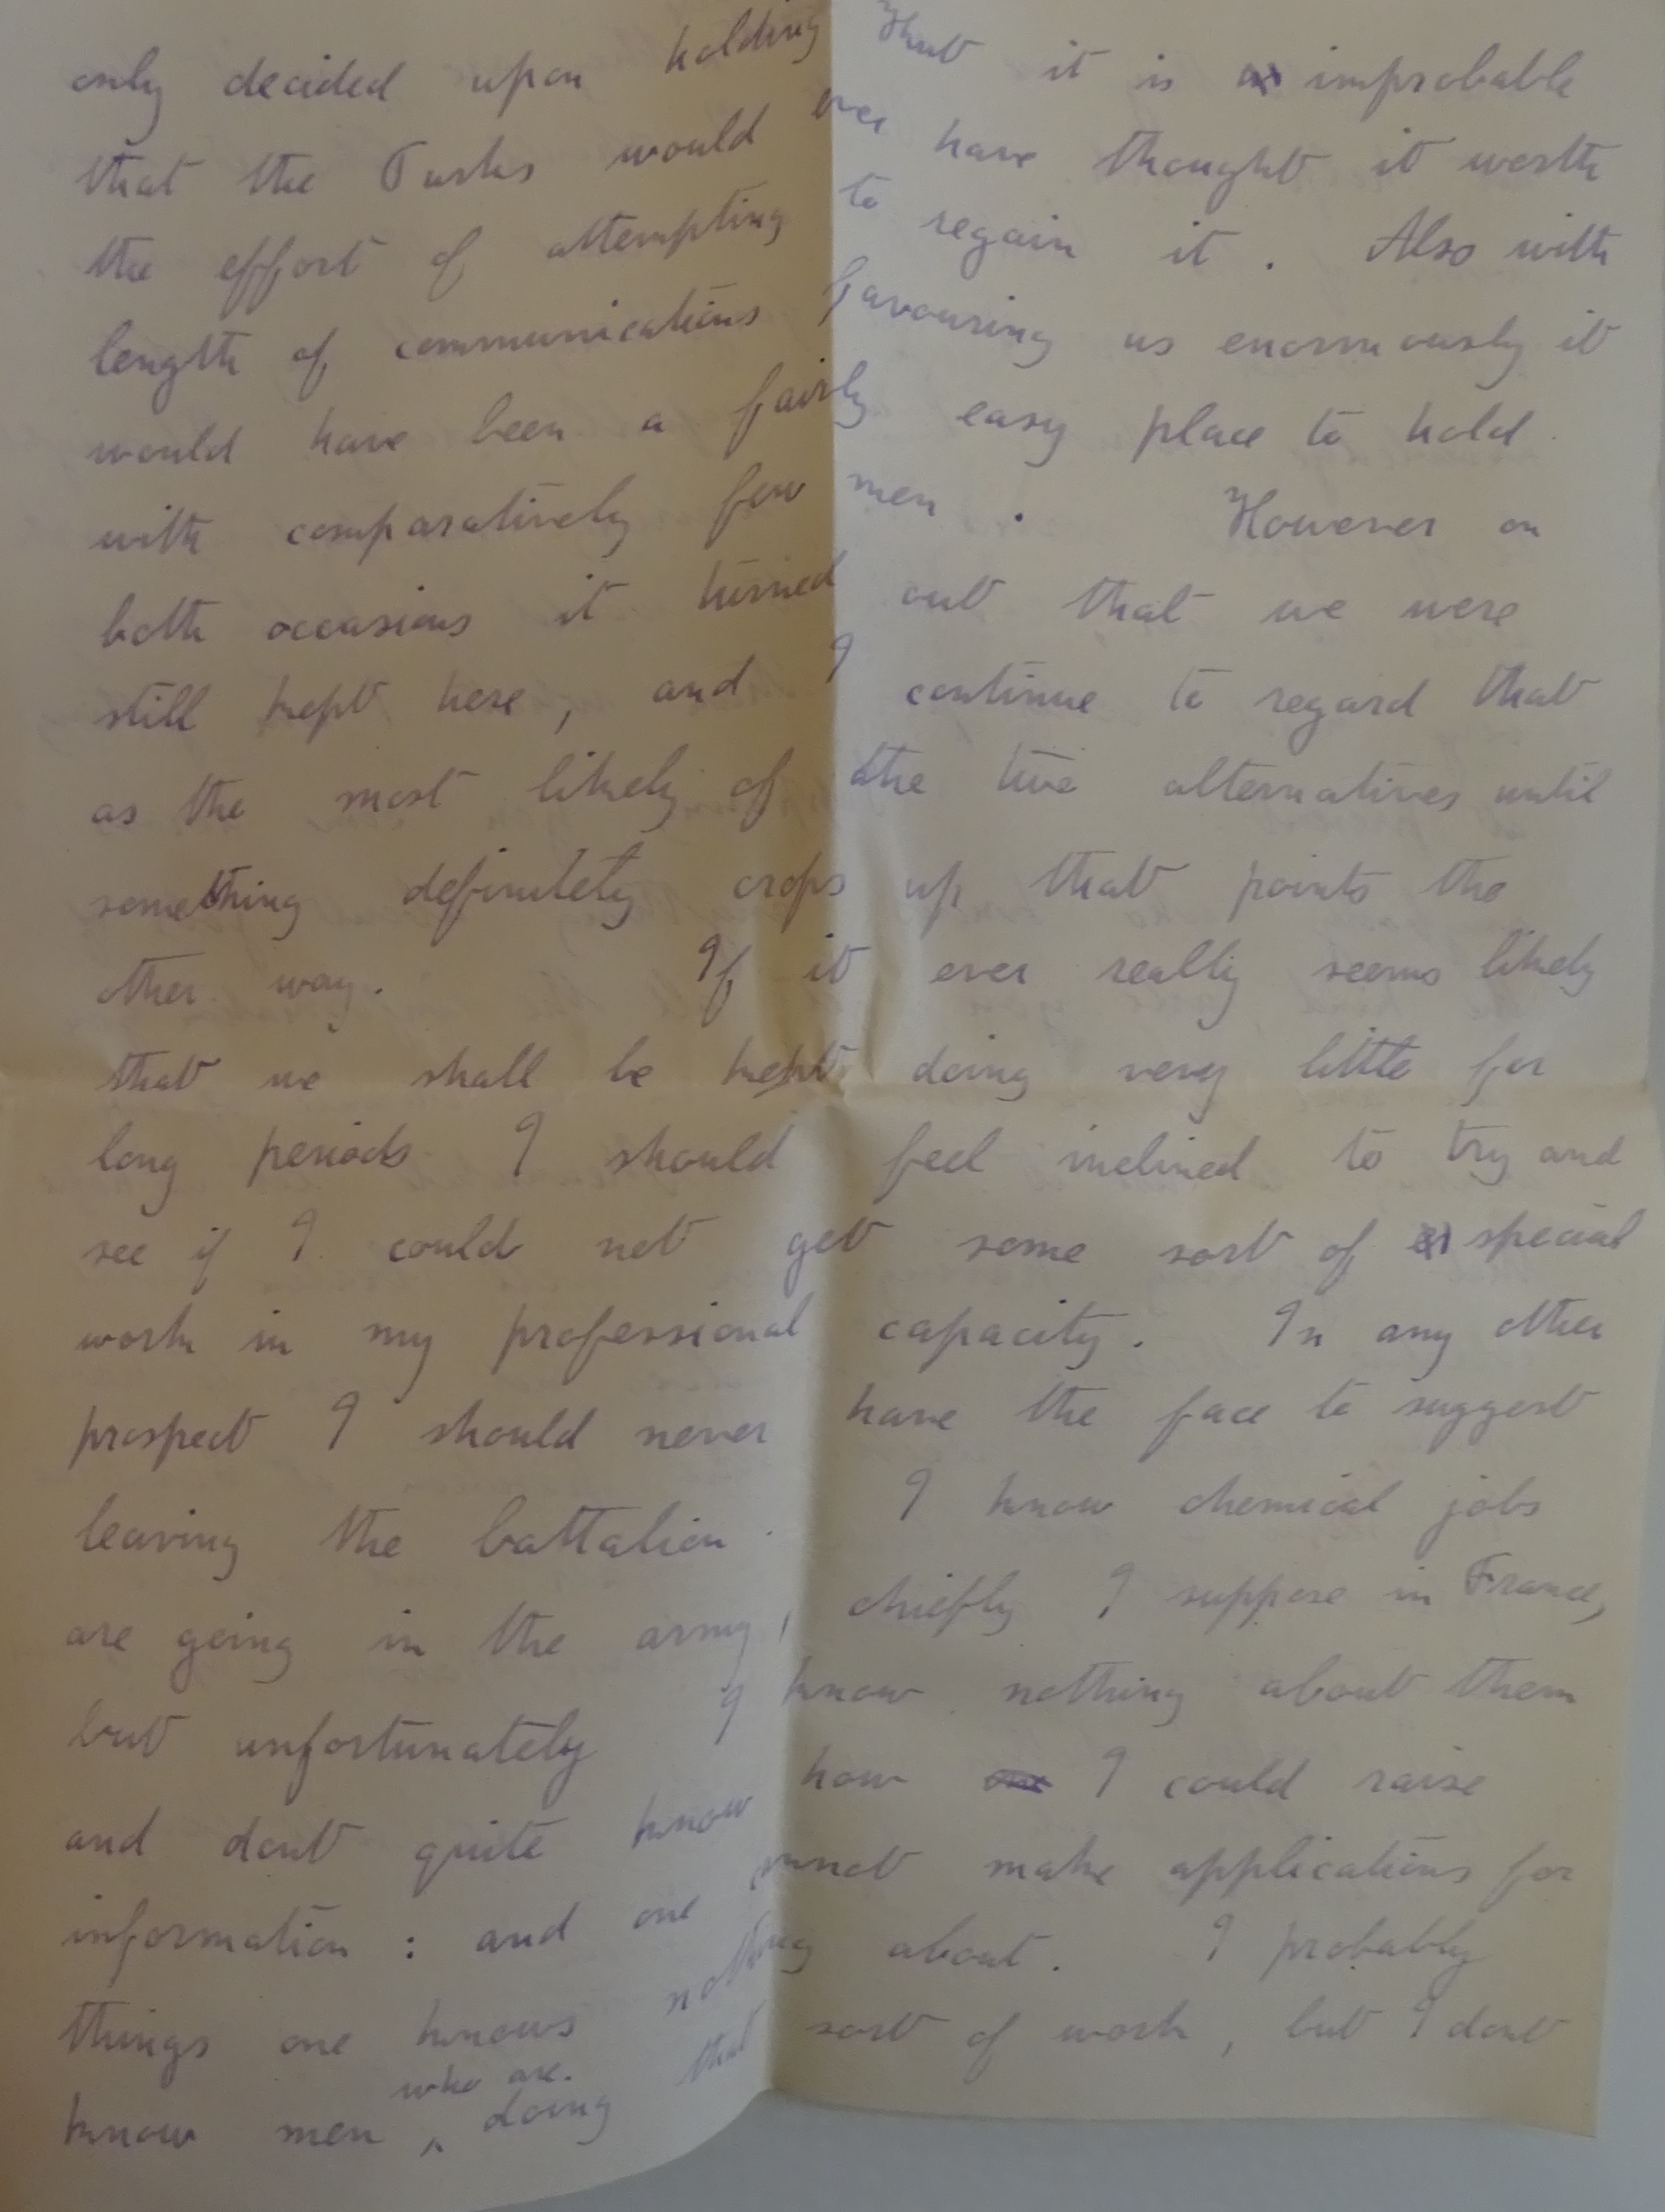 only decided upon holding that it is improbable
that the Turks would ever have thought it worth
the effort of attempting to regain it. Also with
length of communications favouring us enormously it
would have been a fairly easy place to hold
with comparatively few men. However on
both occasions it turned out that we were
still kept here, and I continue to regard that
as the most likely of the two alternatives until
something definitely crops up that points the
other way. If it ever really seems likely
that we shall be kept doing very little for
long periods I should feel inclined to try and
see if I could not get some sort of special
work in my professional capacity. In any other
prospect I should never have the face to suggest
leaving the battalion. I know chemical jobs
are going in the army, chiefly I suppose in France,
but unfortunately I know nothing about them
and dont quite know how I could raise
information : and one cannot make applications for
things one knows nothing about. I probably
know men who are. doing that sort of work, but I dont